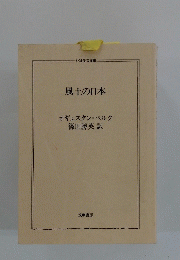 風土の日本
オギュスタン・ベルク
篠田勝英 訳